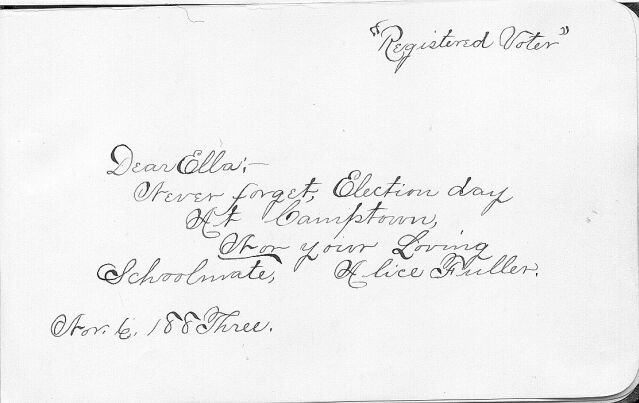 "Registered Voter"
Dear Ella;—
Never forget, Election day
At Camptown,
Nor your Loving
Schoolmate, Alice Fuller.
Nov. 6, 188Three.